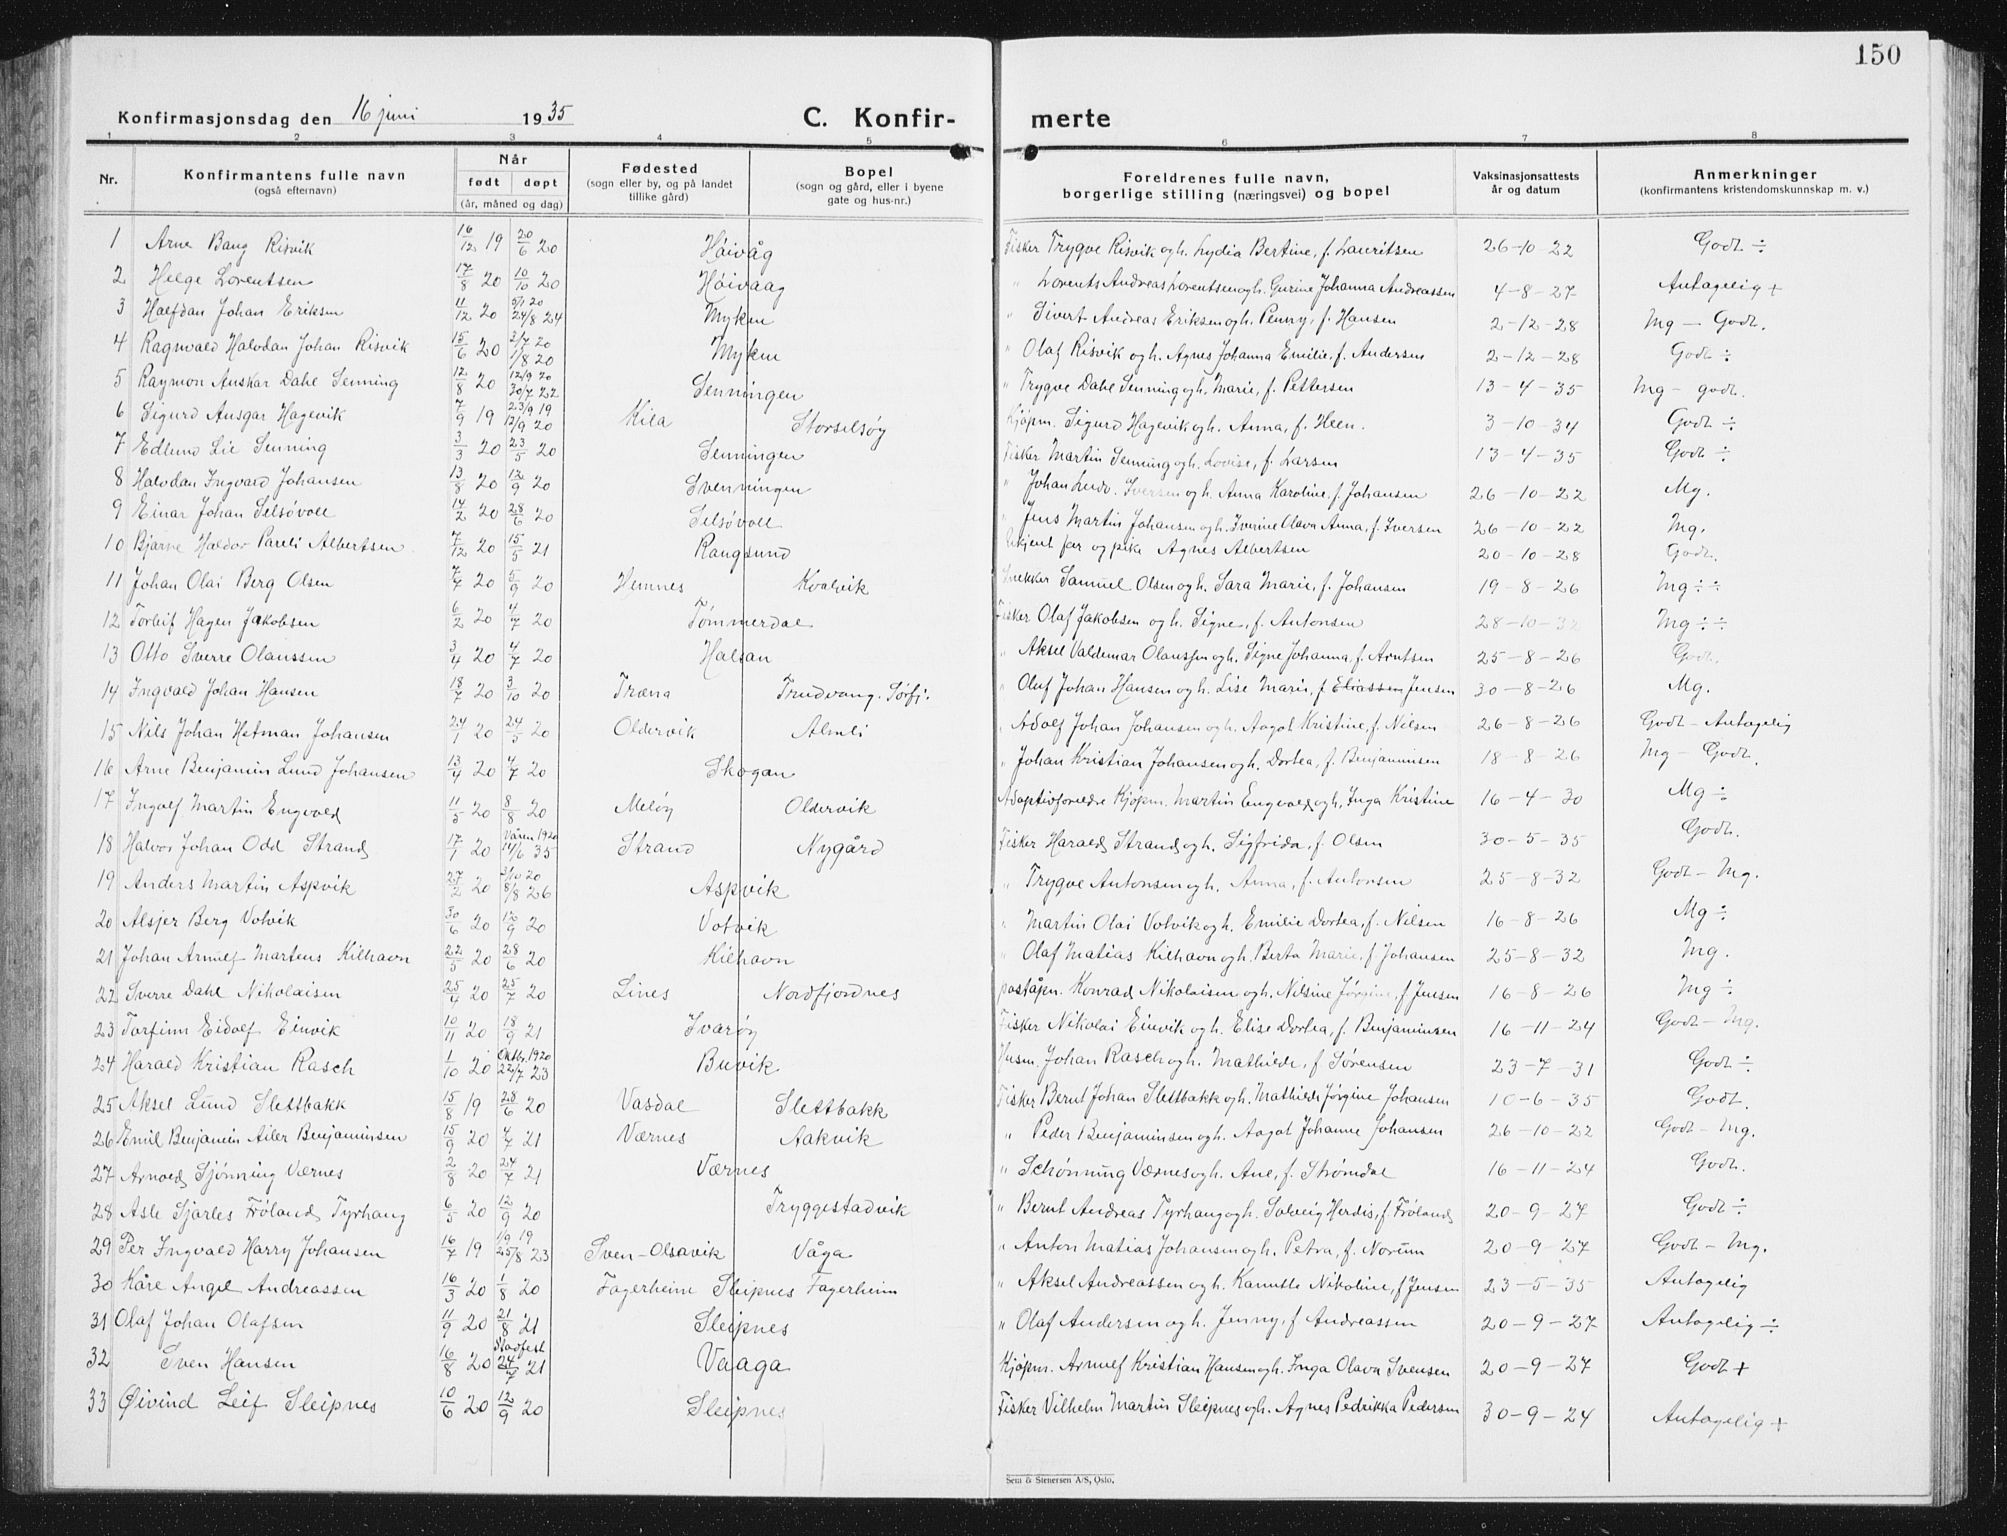 150
Konfirmasjonsdag den 16 juni 1935 C. Konfir- merte
1 2 3 4 5 6 7 8
Nr. Konfirmantens fulle navn (også efternavn) Når født døpt (år, måned og dag) Fødested (sogn eller by, og på landet tillike gård) Bopel (sogn og gård, eller i byene gate og hus-nr.) Foreldrenes fulle navn, borgerlige stilling (næringsvei) og bopel Vaksinasjonsattests år og datum Anmerkninger (konfirmantens kristendomskunnskap m. v.)
1 Arne Bang Risvik 16/12 19 20/6 20 Høivåg Fisker Trygve Risvik ogh. Lydia Bertine, f. Lauritsen 26-10-22 Godt ÷
2 Helge Lorentsen 17/8 20 10/10 20 Høivaag " Lorents Andreas Lorentsen ogh. Gurine Johanna Andreassen 4-8-27 Antagelig +
3 Halfdan Johan Eriksen 11/12 20 5/1 20 24/8 24 Myken " Sivert Andreas Eriksen ogh. Penny, f. Hansen 2-12-28 Mg - Godt.
4 Ragnvald Halvdan Johan Risvik 15/6 20 2/7 20 1/8 20 Myken " Olaf Risvik ogh. Agnes Johanna Emilie, f. Andersen 2-12-28 Godt ÷
5 Raymon Anskar Dahl Senning 12/8 20 12/9 20 30/7 22 Senningen " Trygve Dahl Senning ogh. Marie, f. Pettersen 13-4-35 Mg - godt.
6 Sigurd Ansgar Hagevik 7/9 19 23/9 19 12/9 20 Kila Storselsøy Kjøpm. Sigurd Hagevik ogh. Anna, f. Heen. 3-10-34 Godt ÷
7 Edlund Lie Senning 3/3 20 23/5 20 Senningen Fisker Martin Senning ogh. Lovise, f. Larsen 13-4-35 Godt ÷
8 Halvdan Ingvard Johansen 13/8 20 12/9 20 Svenningen " Johan Ludv. Iversen ogh. Anna Karoline, f. Johansen 26-10-22 Mg.
9 Einar Johan Selsøvoll 14/2 20 28/6 20 Selsøvoll " Jens Martin Johansen ogh. Iverine Olava Anna, f. Iversen 26-10-22 Mg.
10 Bjarne Haldor Pareli Albertsen 7/12 20 15/5 21 Rangsund Ukjent far og pike Agnes Albertsen 20-10-28 Godt.
11 Johan Olai Berg Olsen 7/7 20 5/9 20 Hemnes Kvalvik Snekker Samuel Olsen ogh. Sara Marie, f. Johansen 19-8-26 Mg ÷ ÷
12 Torleif Hagen Jakobsen 6/2 20 4/7 20 Tømmerdal Fisker Olaf Jakobsen og h. Signe, f. Antonsen 28-10-32 Mg ÷ ÷
13 Otto Sverre Olaussen 3/4 20 4/7 20 Halsan " Aksel Valdemar Olaussen ogh. Signe Johanna, f. Arntsen 25-8-26 Godt.
14 Ingvald Johan Hansen 18/7 20 3/10 20 Træna Trudvang. Sørfj. " Oluf Johan Hansen ogh. Lise Marie, f. Eliassen Jensen 30-8-26 Mg.
15 Nils Johan Hetman Johansen 24/1 20 24/5 20 Oldervik Almli " Adolf Johan Johansen ogh. Aagot Kristine, f. Nilsen 26-8-26 Godt - Antagelig
16 Arne Benjamin Lund Johansen 13/4 20 4/7 20 Skogan " Johan Kristian Johansen ogh. Dortea, f. Benjaminsen 18-8-26 Mg - Godt.
17 Ingolf Martin Engvold 11/5 20 8/8 20 Meløy Oldervik Adoptivforeldre Kjøpm. Martin Engvold ogh, Inga Kristine 16-4-30 Mg ÷
18 Halvor Johan Odd Strand 17/1 20 Våren 1920 14/6 35 Strand Nygård Fisker Harald Strand ogh. Sigfrida, f. Olsen 30-5-35 Godt.
19 Anders Martin Aspvik 27/2 20 3/10 20 8/8 26 Aspvik " Trygve Antonsen ogh. Anna, f. Antonsen 25-8-32 Godt - Mg.
20 Alsjer Berg Votvik 30/6 20 12/9 20 Votvik " Martin Olai Votvik ogh. Emilie Dortea, f. Nilsen 16-8-26 Mg ÷
21 Johan Arnulf Martens Kilhavn 22/5 20 28/6 20 Kilhavn " Olaf Matias Kilhavn ogh. Berta Marie, f. Johansen 25-8-32 Mg.
22 Sverre Dahl Nikolaisen 25/4 20 25/7 20 Lines Nordfjordnes poståpn. Konrad Nikolaisen ogh. Nilsine Jørgine, f. Jensen 16-8-26 Mg ÷
23 Torfinn Eidolf Einvik 10/11 20 18/9 21 Svarøy Fisker Nikolai Einvik ogh. Elise Dortea, f. Benjaminsen 16-11-24 Godt - Mg.
24 Harald Kristian Rasch 1/10 20 Oktbr. 1920 22/7 23 Buvik Husm. Johan Rasch ogh. Mathilde, f. Sørensen 23-7-31 Godt ÷
25 Aksel Lund Slettbakk 15/8 19 28/6 20 Vasdal Slettbakk Fisker Bernt Johan Slettbakk ogh. Mathilde Jørgine Johansen 10-6-35 Godt.
26 Emil Benjamin Ailer Benjaminsen 15/9 20 4/7 21 Værnes Aakvik " Peder Benjaminsen ogh. Aagot Johanne Johansen 26-10-22 Godt - Mg.
27 Arnold Sjønning Værnes 2/8 20 24/7 21 Værnes " Schønning Værnes ogh. Ane, f. Strømdal 16-11-24 Godt.
28 Asle Sjarles Frøland Tyrhaug 6/5 20 12/9 20 Tryggestadvik " Bernt Andreas Tyrhaug ogh. Solveig Herdis, f. Frøland 20-9-27 Godt ÷
29 Per Ingvald Harry Johansen 16/7 19 1/9 19 25/8 23 Sven-Olsavik Våga " Anton Matias Johansen ogh. Petra, f. Norum 20-9-27 Godt - Mg.
30 Kåre Angel Andreassen 16/3 20 1/8 20 Fagerheim Sleipnes Fagerheim " Aksel Andreassen ogh. Kanutte Nikoline, f. Jensen 23-5-35 Antagelig
31 Olaf Johan Olafsen 11/9 20 21/8 21 Sleipnes " Olaf Andersen og h. Jenny, f Andreassen 20-9-27 Antagelig ÷
32 Sven Hansen 16/8 20 Stadfest 24/7 21 Vaaga Kjøpm. Arnulf Kristian Hansen ogh. Inga Olava Svensen 20-9-27 Godt +
33 Øivind Leif Sleipnes 10/6 20 12/9 20 Sleipnes Fisker Vilhelm Martin Sleipnes ogh. Agnes Pedrikka Pedersen 30-9-24 Antagelig +
Sem & Stenersen A/S, Oslo.